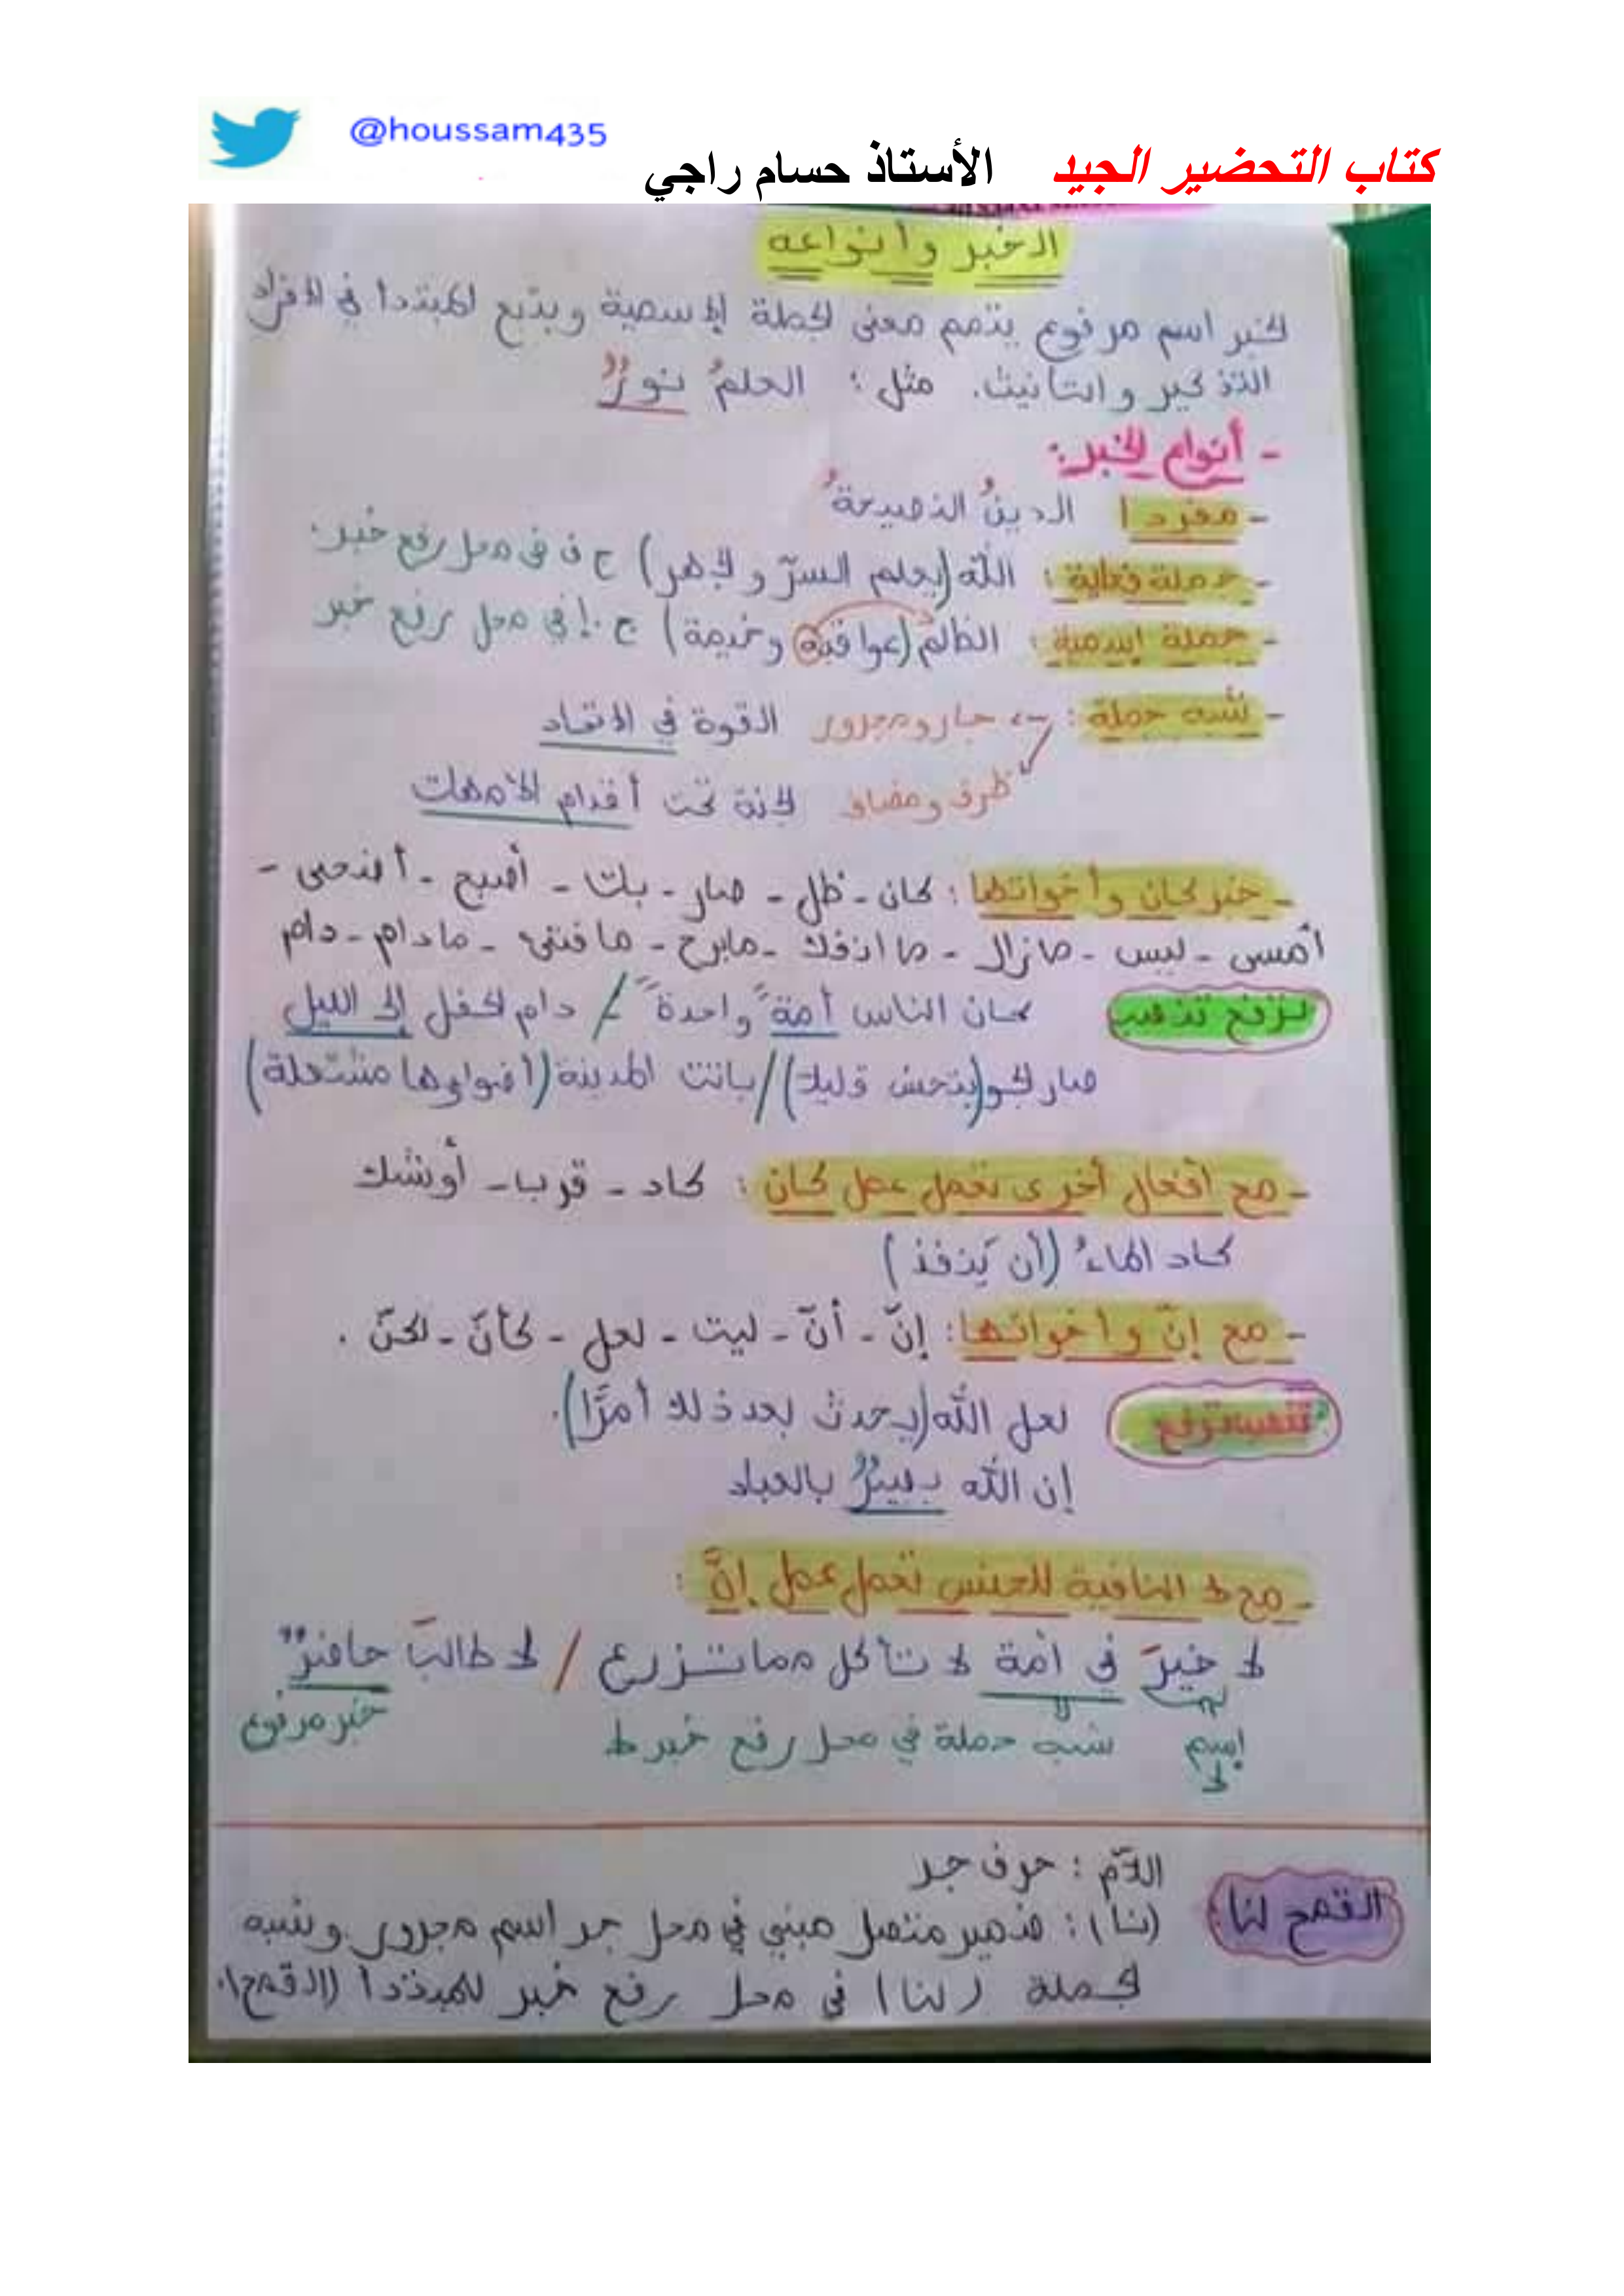 @houssam435
كتاب التحضير الجيد الأستاذ حسام راجي
الخبر وأنواعه
الخبر اسم مرفوع يتمم معنى الجملة الإسمية ويتبع المبتدأ في الافراد
التذكير والتأنيث. مثل: العلمُ نورٌ
- أنواع الخبر:
- مفردا الدينُ النصيحةُ
- جملة فعلية: الله (يعلم السرّ والجهر) ج ف في محل رفع خبر.
- جملة اسمية: الظالمُ (عواقبه وخيمة) ج.إ في محل رفع خبر
- شبه جملة: ← جار ومجرور القوة في الاتحاد
ظرف ومضاف الجنة تحت أقدام الأمهات
- خبر كان وأخواتها: كان - ظل - صار - بات - أصبح - أضحى -
أمسى - ليس - مازال - ما انفك - مابرح - ما فتئ - مادام - دام
ترفع تنصب كان الناس أمةً واحدةً / دام الحفل إلى الليل
صار الجو (يتحسن قليلا) / باتت المدينة (أضواؤها مشتعلة)
- مع أفعال أخرى تعمل عمل كان: كاد - قرب - أوشك
كاد الماءُ (أن يَنفذ)
- مع إنّ وأخواتها: إنّ - أنّ - ليت - لعل - كأنّ - لكنّ.
تنصب ترفع لعل الله (يحدث بعد ذلك أمرًا).
إن الله بصيرٌ بالعباد
- مع لا النافية للجنس تعمل عمل إنَّ:
لا خيرَ في أمة لا تأكل مما تزرع / لا طالبَ حاضرٌ
إسم لا شبه جملة في محل رفع خبر لا خبر مرفوع
القمح لنا: اللاّم: حرف جر
(نا): ضمير متصل مبني في محل جر اسم مجرور وشبه
الجملة (لنا) في محل رفع خبر للمبتدأ (القمح).